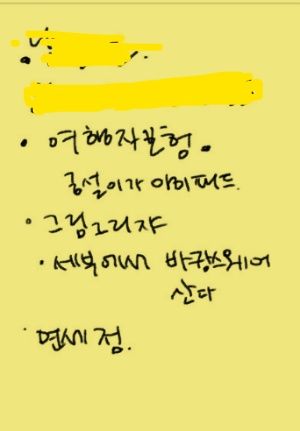 · 여행자보험.
공설이가 아이패드.
· 그림그리쟈
· 세부에서 바캉스웨어
산다
· 면세점.